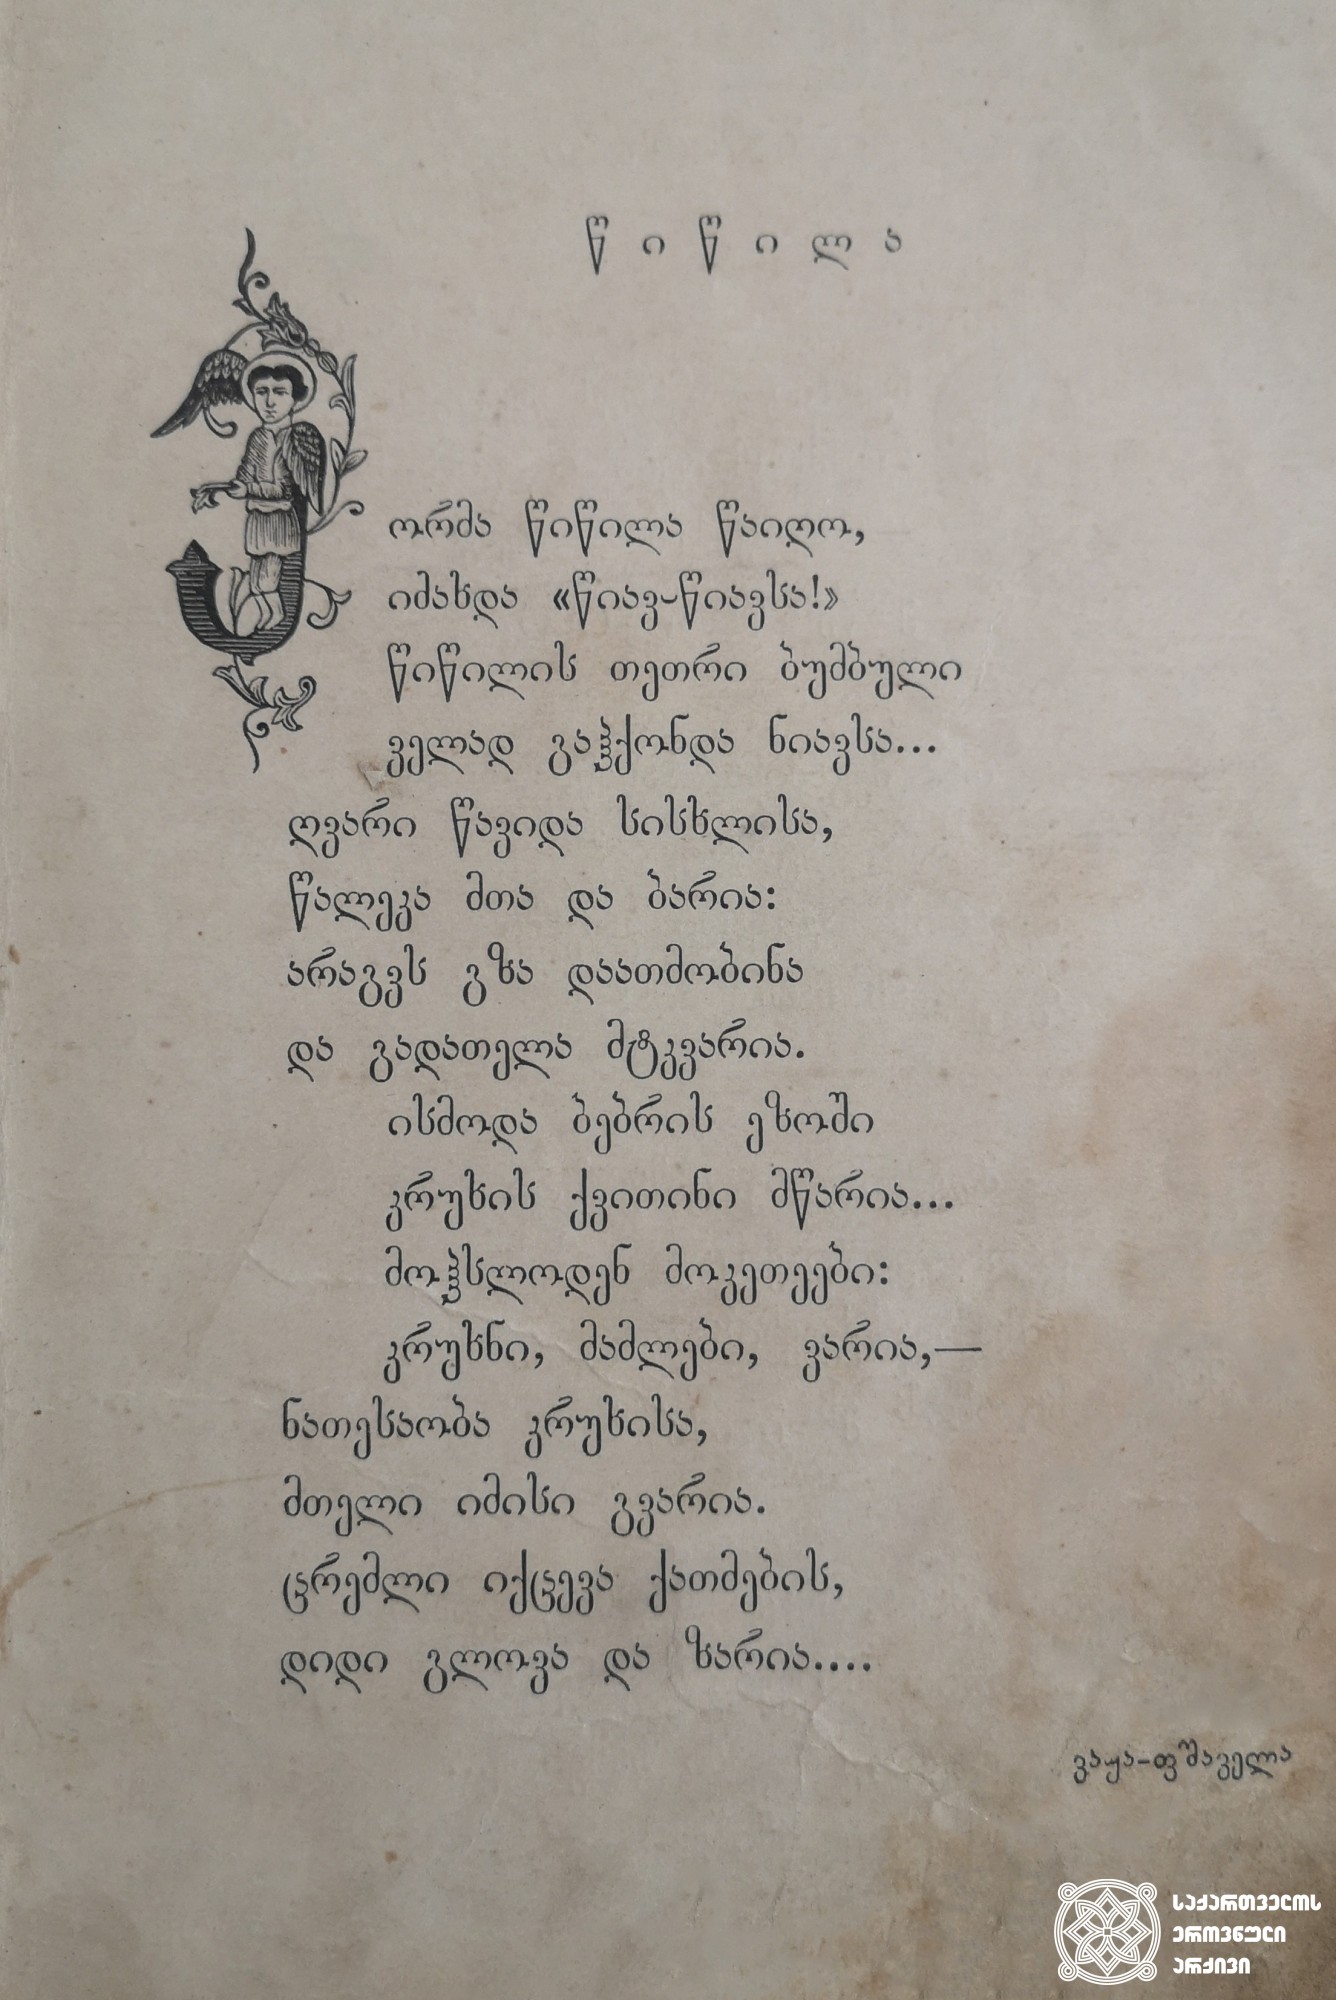 წიწილა
ქორმა წიწილა წაიღო,
იძახდა «წიავ-წიავსა!»
წიწილის თეთრი ბუმბული
ველად გაჰქონდა ნიავსა...
ღვარი წავიდა სისხლისა,
წალეკა მთა და ბარია:
არაგვს გზა დაათმობინა
და გადათელა მტკვარია.
ისმოდა ბებრის ეზოში
კრუხის ქვითინი მწარია...
მოჰსლოდენ მოკეთეები:
კრუხნი, მამლები, ვარია,—
ნათესაობა კრუხისა,
მთელი იმისი გვარია.
ცრემლი იქცევა ქათმების,
დიდი გლოვა და ზარია....
ვაჟა-ფშაველა
საქართველოს
ეროვნული
არქივი